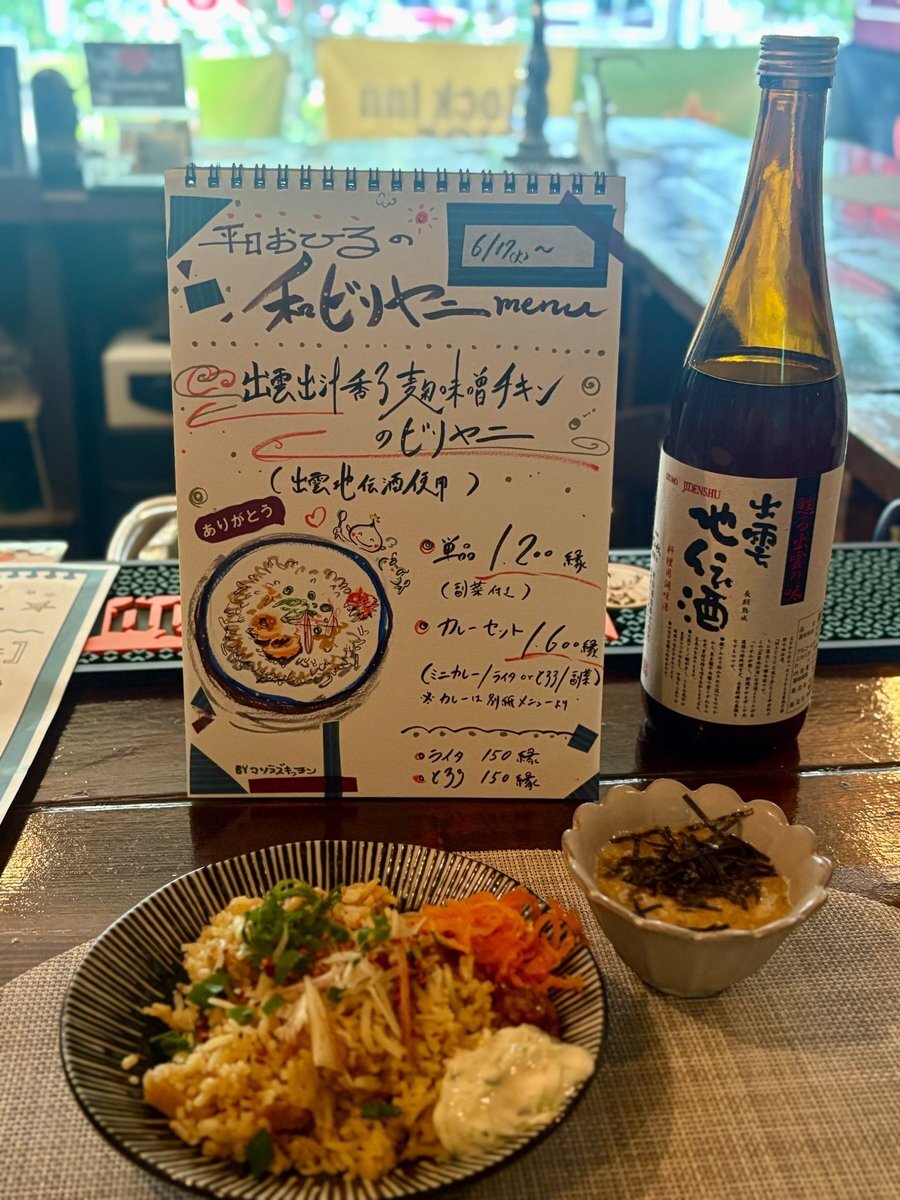 平日おひるの
6/17(火)~
和ビリヤニmenu
出雲出汁香る麹味噌チキン
のビリヤニ
(出雲地伝酒使用)
ありがとう
単品 1.200縁
(副菜付き)
カレーセット 1.600縁
(ミニカレー/ライタ or とろろ/副菜)
※カレーは別紙メニューより
ライタ 150縁
とろろ 150縁
BYマソラズキッチン
JIDENSHU
甦る出雲の味
出雲
地伝酒
長期熟成
料理用調味酒
lock Inn